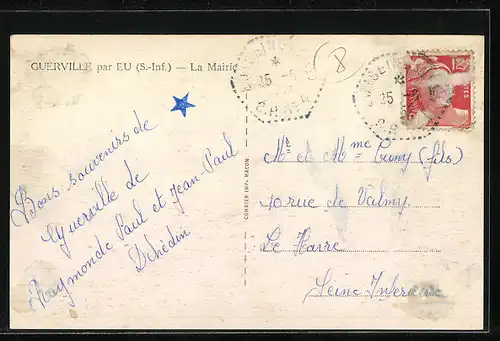 GUERVILLE par EU (S.-Inf.) — La Mairie
8
Bons souvenirs de
Guerville de
Raymonde Paul et Jean-Paul
Dehédin
COMBIER IMP. MACON
M. et Mme Cuny (fils)
10 rue de Valmy
Le Havre
Seine Inferieure